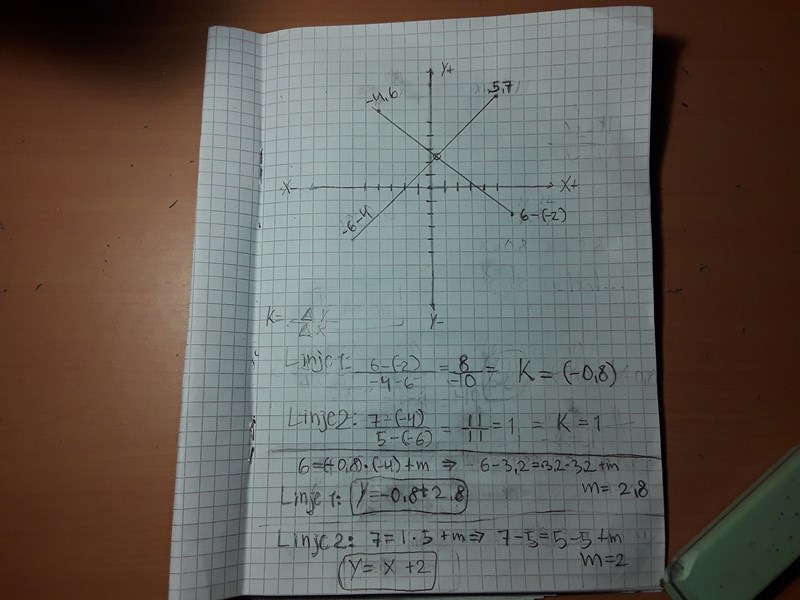 Y+
-4,6
5,7
X-
X+
-6-4
6-(-2)
Y-
K= ΔY/ΔX
Linje1: 6-(-2)/-4-6 = 8/-10 = K=(-0,8)
Linje2: 7-(-4)/5-(-6) = 11/11 = 1 = K=1
6=(-0,8)·(-4)+m ⇒ 6-3,2=3,2-3,2+m
m=2,8
Linje 1: Y=-0,8+2,8
Linje2: 7=1·5+m ⇒ 7-5=5-5+m
m=2
Y= X+2